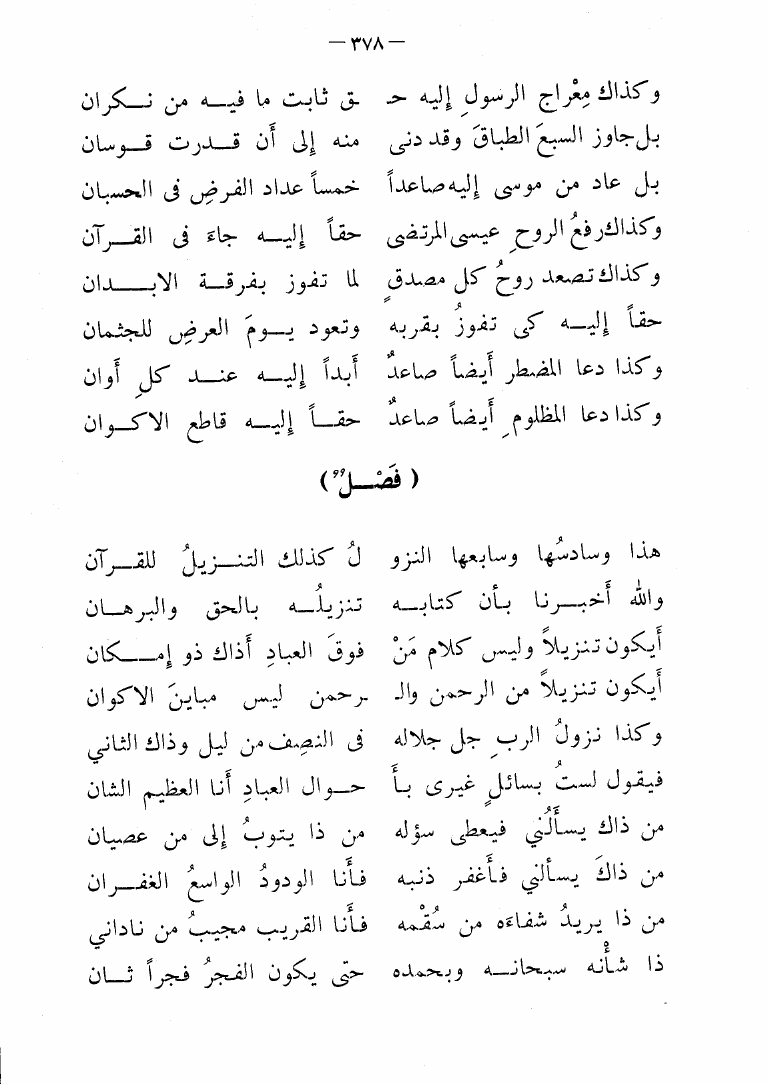 — ٣٧٨ —
وكذاك مِعْراج الرسولِ إليه حـ ـق ثابت ما فيـه من نـكران
بل جاوز السبعَ الطباقَ وقد دنى منه إلى أَن قـدرت قـوسان
بل عاد من موسى إليه صاعداً خمساً عداد الفرضِ فى الحسبان
وكذاك رفعُ الروحِ عيسى المرتضى حقاً إليـه جاءَ فى القـرآن
وكذاك تصعد روحُ كل مصدقٍ لما تفوز بفرقـة الابـدان
حقاً إليـه كى تفوزُ بقربه وتعود يـومَ العرضِ للجثمان
وكذا دعا المضطرِ أيضاً صاعدٌ أبداً إليـه عنـد كلِ أوان
وكذا دعا المظلومِ أيضاً صاعدٌ حقـاً إليـه قاطع الاكـوان
( فَصْـلٌ )
هذا وسادسُها وسابعها النزو لُ كذلك التنـزيلُ للقـرآن
والله أخبـرنا بـأن كتابـه تنزيلُـه بالحق والبرهـان
أيكون تنزيلاً وليس كلام مَنْ فوقَ العبادِ أذاك ذو إمـكان
أيكون تنزيلاً من الرحمن والـ ـرحمن ليس مباينَ الاكوان
وكذا نزولُ الربِ جل جلاله فى النصِف من ليل وذاك الثاني
فيقول لستُ بسائلٍ غيرى بـأَ حـوال العبادِ أنا العظيم الشان
من ذاك يسأَلُني فيعطى سؤله من ذا يتوبُ إلى من عصيان
من ذاكَ يسألني فأَغفر ذنبه فأَنا الودودُ الواسعُ الغفـران
من ذا يريدُ شفاءَه من سُقْمه فأَنا القريب مجيبُ من ناداني
ذا شأْنه سبحانـه وبحمده حتى يكون الفجرُ فجراً ثـان